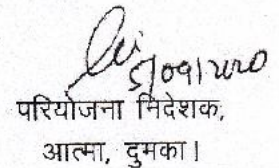 5/09/2020
परियोजना निदेशक,
आत्मा, दुमका।